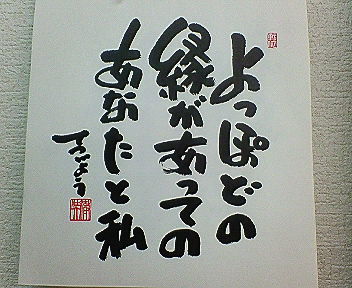 よっぽどの
縁があっての
あなたと私
てつじょう